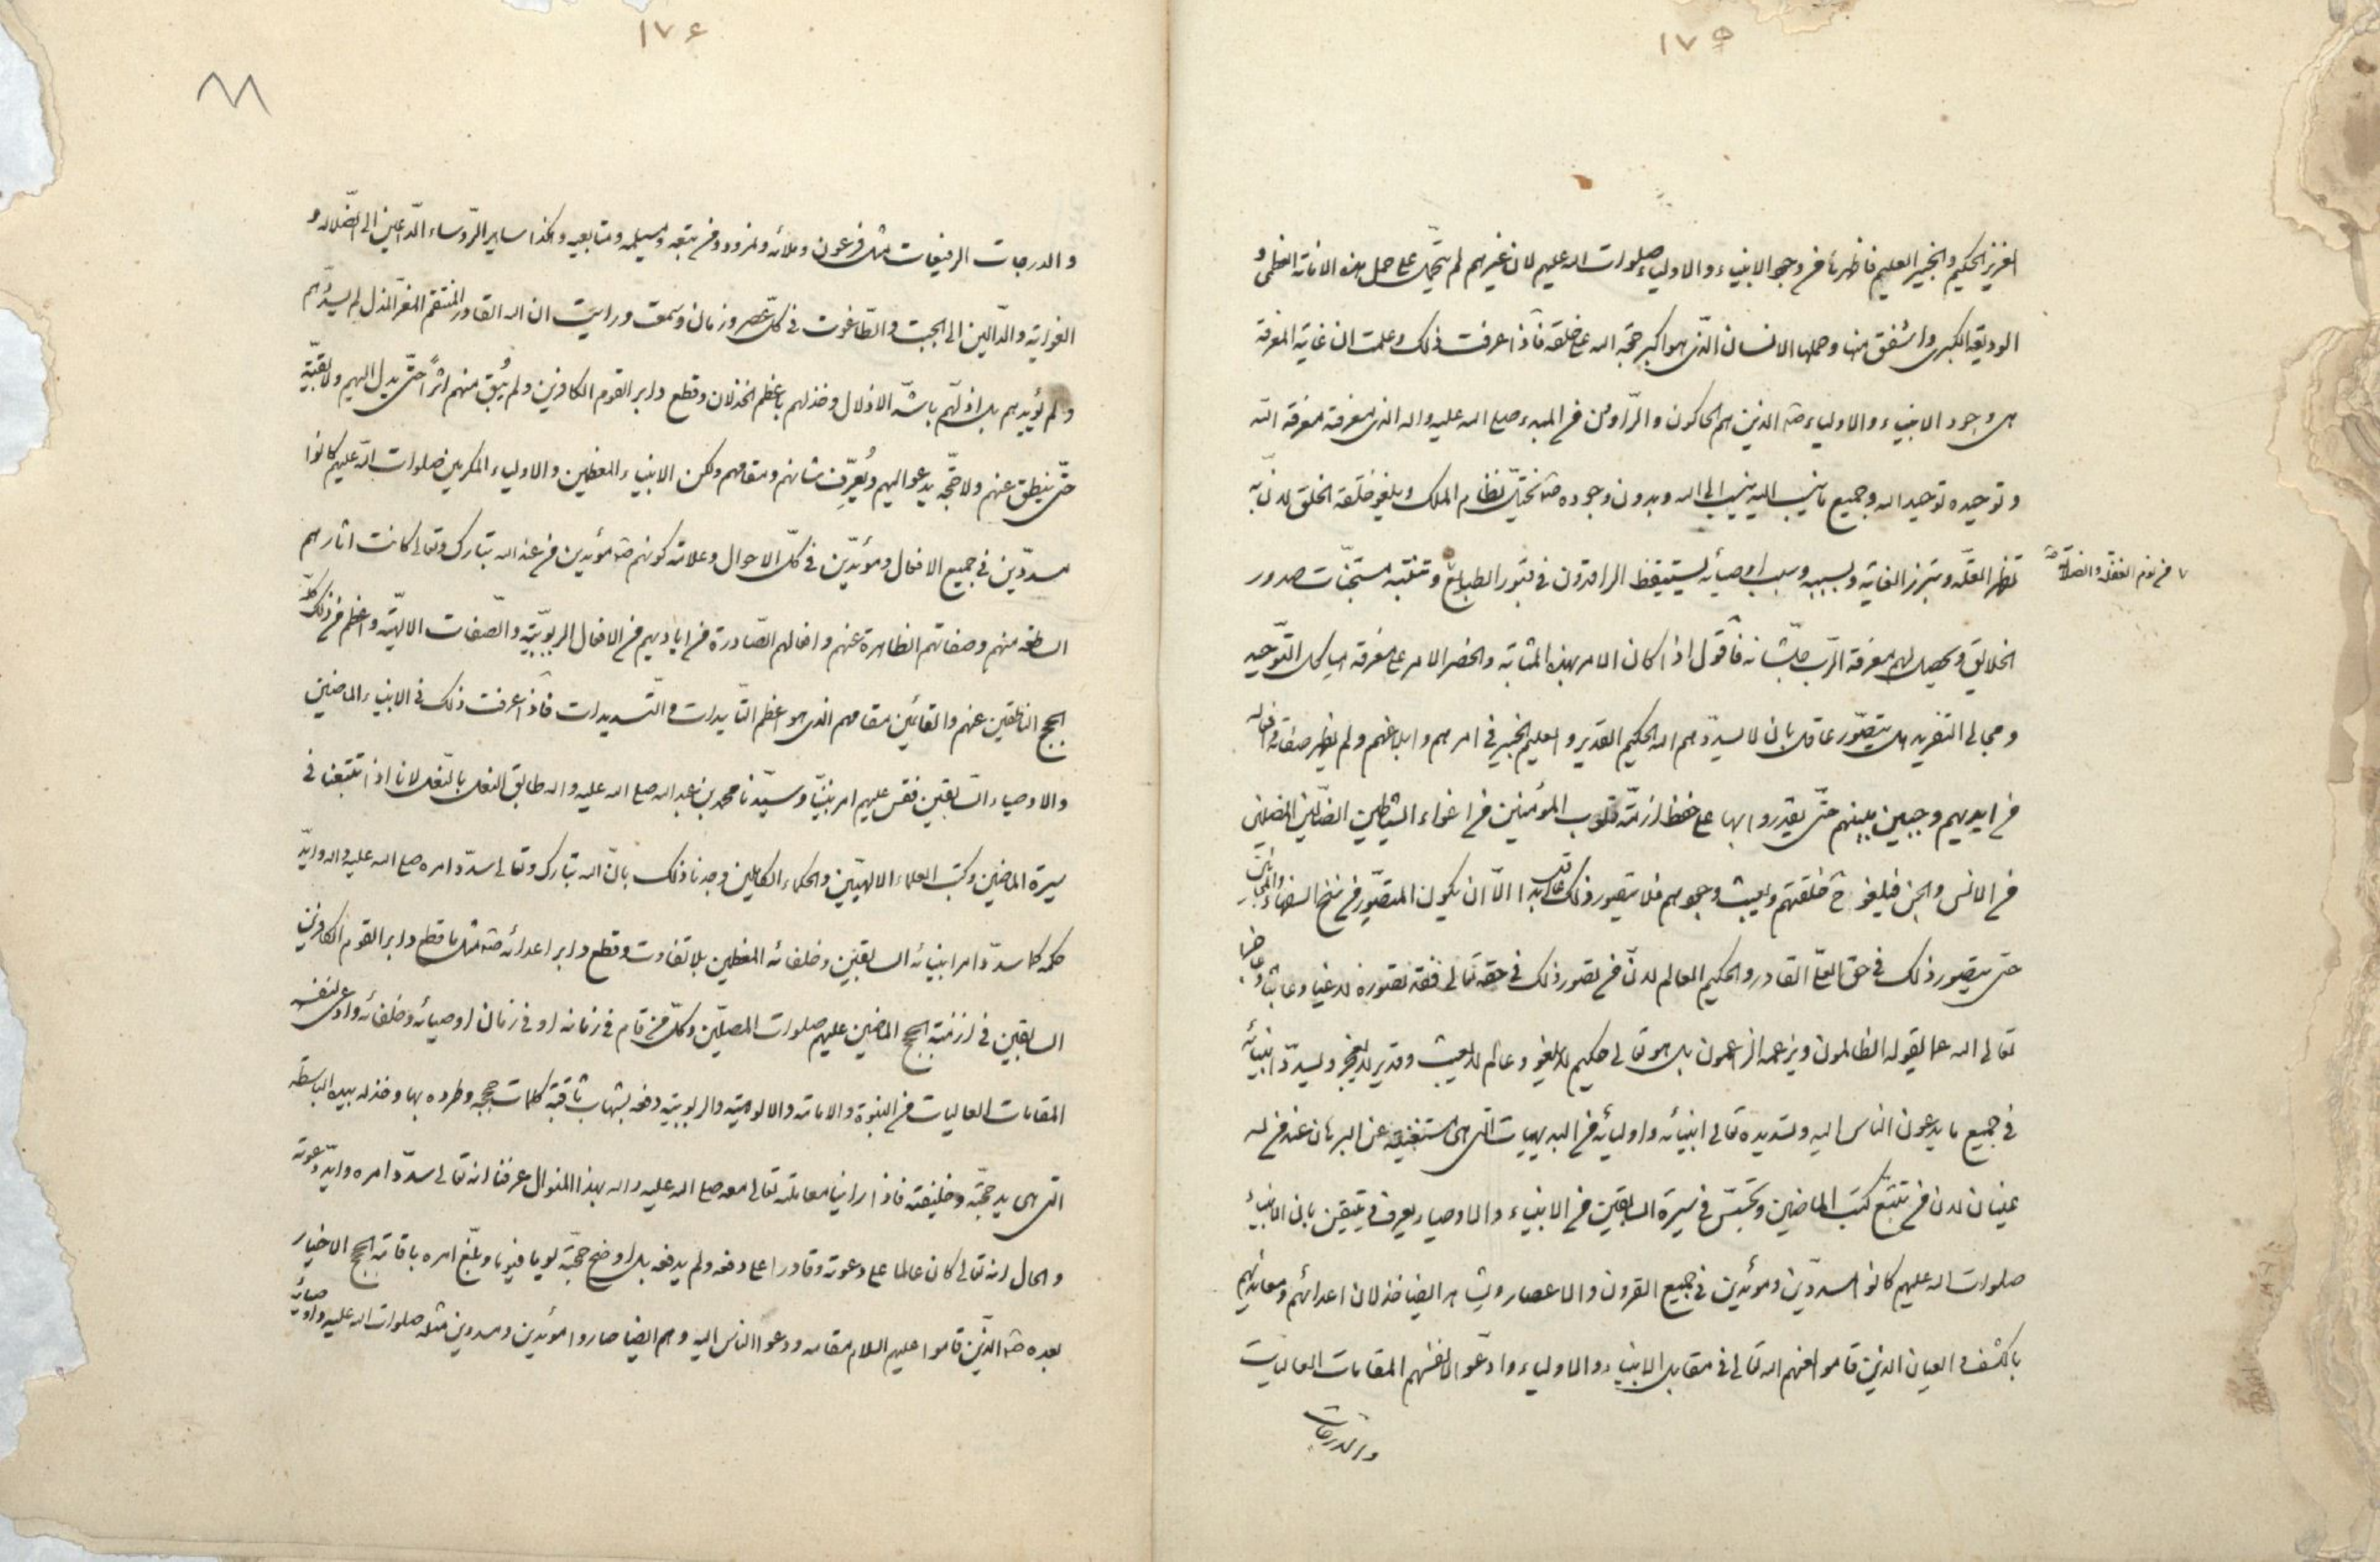 ١٧٥
العزيز الحكيم والخبير العليم فاظهرنا من وجود الانبياء والاولياء صلوات الله عليهم لان غيرهم لم يتحمل على حمل هذه الامانة العظمى و
الوديعة الكبرى واشفقن منها وحملها الانسان الذى هو اكبر حجة الله على خلقه فاذا عرفت ذلك وعلمت ان غاية المعرفة
هى وجود الانبياء والاولياء الذين هم الحاكون والراوون من المبدء صلى الله عليه واله الذى معرفته معرفة الله
وتوحيده توحيد الله وجميع ما ينسب اليه ينسب الى الله وبدون وجوده يختل نظام الملك ويلغو خلقة الخلق لان به
تظهر العلة وتبرز الغاية وبسببه وسبب اوصيائه يستيقظ الراقدون فى قبور الطبايع وتنتبه مستجنات صدور
من نوم الغفلة والضلالة
الخلايق ويحصل لهم معرفة الرب جل شانه فاقول اذا كان الامر بهذه المثابة وانحصر الامر على معرفة هياكل التوحيد
ومجالى التفريد هل يتصور عاقل بان لا يسددهم الله الحكيم القدير والعليم الخبير فى امرهم وابلاغهم ولم يظهر صفاته وافعاله
من ايديهم وجبين مبينهم حتى يقدروا بها على حفظ ازمة قلوب المؤمنين من اغواء الشياطين الضالين المضلين
من الانس والجن فيلغو ح خلقتهم ويعبث وجودهم فلا يتصور ذلك عاقل ابدا الا ان يكون المتصور من سنخ السفهاء والمجانين
حتى يتصور ذلك فى حق العلى القادر والحكيم العالم لان من تصور ذلك فى حقه تعالى فقد تصوره لاغيا وعابثا وعاجزا
تعالى الله عما يقوله الظالمون ويزعمه الزاعمون بل هو تعالى حكيم لا يلغو وعالم لا يعبث وقدير لا يعجز ويسدد انبيائه
فى جميع ما يدعون الناس اليه وتسديده تعالى انبيائه واوليائه من البديهيات التى هى مستغنية عن البرهان عند من له
عينان لان من تتبع كتب الماضين وتجسس فى سيرة السابقين من الانبياء والاوصياء يعرف ويتيقن بان الانبياء
صلوات الله عليهم كانوا مسددين ومؤيدين فى جميع القرون والاعصار ويشاهد ايضا خذلان اعدائهم ومعانديهم
بالكشف والعيان الذين قاموا لعنهم الله تعالى فى مقابل الانبياء والاولياء وادعوا لانفسهم المقامات العاليات
والدرجات
١٧٦
والدرجات الرفيعات مثل فرعون وملائه ونمرود ومن تبعه ومسيلمه ومتابعيه وهكذا ساير الرؤساء الداعين الى الضلالة و
الغواية والدالين الى الجبت والطاغوت فى كل عصر وزمان وسمعت ورايت ان الله القادر المنتقم المعز المذل لم يسددهم
ولم يؤيدهم بل اذلهم باشد الاذلال وخذلهم باعظم الخذلان وقطع دابر القوم الكافرين ولم يبق منهم اثرا حتى يدل اليهم ولا بقية
حتى ينطق عنهم ولا حجة يدعو اليهم ويعرف شانهم ومقامهم ولكن الانبياء المعظمين والاولياء المكرمين صلوات الله عليهم كانوا
مسددين فى جميع الافعال ومؤيدين فى كل الاحوال وعلامة كونهم مؤيدين من عند الله تبارك وتعالى كانت اثارهم
الساطعة منهم وصفاتهم الظاهرة عنهم وافعالهم الصادرة من اياديهم من الافعال الربوبية والصفات الالهية واعظم من ذلك كله
الحجج الناطقين عنهم والقائمين مقامهم الذى هو اعظم التاييدات والتسديدات فاذا عرفت ذلك فى الانبياء الماضين
والاوصياء السابقين فقس عليهم امر نبينا وسيدنا محمد بن عبد الله صلى الله عليه واله طابق النعل بالنعل لانا اذا تتبعنا فى
سيرة الماضين وكتب العلماء الالهيين والحكماء الكاملين وجدنا ذلك بان الله تبارك وتعالى سدد امره صلى الله عليه واله وايد
حكمه كما سدد امر انبيائه السابقين وخلفائه المعظمين بلا تفاوت وقطع دابر اعدائه مثل ما قطع دابر القوم الكافرين
السابقين فى ازمنة الحجج الماضين عليهم صلوات المصلين وكل من قام فى زمانه او فى زمان اوصيائه وخلفائه وادعى لنفسه
المقامات العاليات من النبوة والامامة والالوهية والربوبية دفعه بشهاب ثاقبة كلمات حججه وطرده بها وخذله بيده الباسطة
التى هى يد حجته وخليفته فاذا راينا معاملته تعالى معه صلى الله عليه واله بهذا المنوال عرفنا انه تعالى سدد امره وايد دعوته
والحال انه تعالى كان عالما على دعوته وقادرا على دفعه ولم يدفعه بل اوضح حجته يوما فيوما وبلغ امره باقامة الحجج الاخيار
بعده الذين قاموا عليهم السلام مقامه ودعوا الناس اليه وهم ايضا صاروا مؤيدين ومسددين مثله صلوات الله عليه واوصيائه